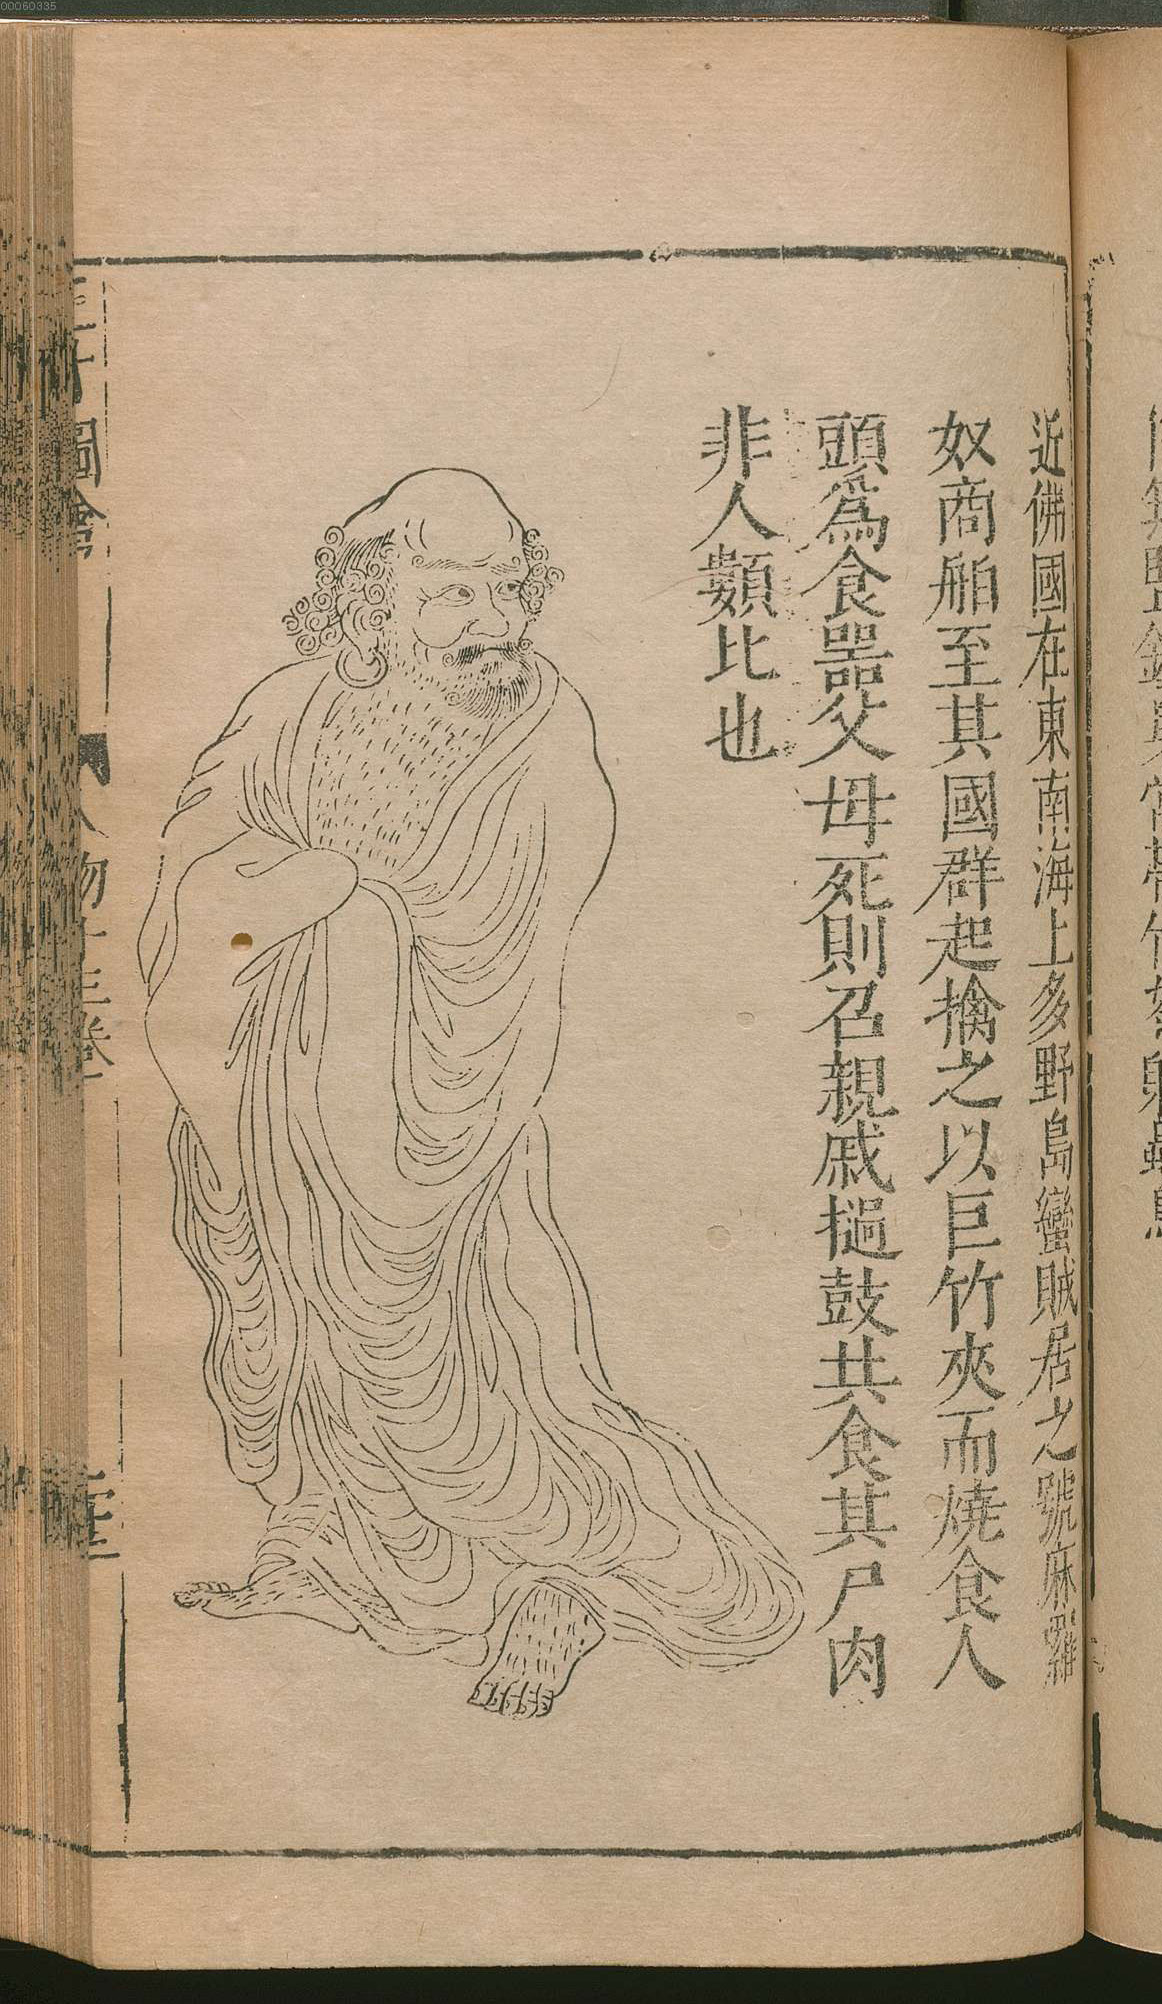 近佛國在東南海上多野島蠻賊居之號麻羅
奴商舶至其國群起擒之以巨竹夾而燒食人
頭爲食噐父母死則召親戚撾鼓共食其尸肉
非人類比也
圖會
人物十三卷
00060335